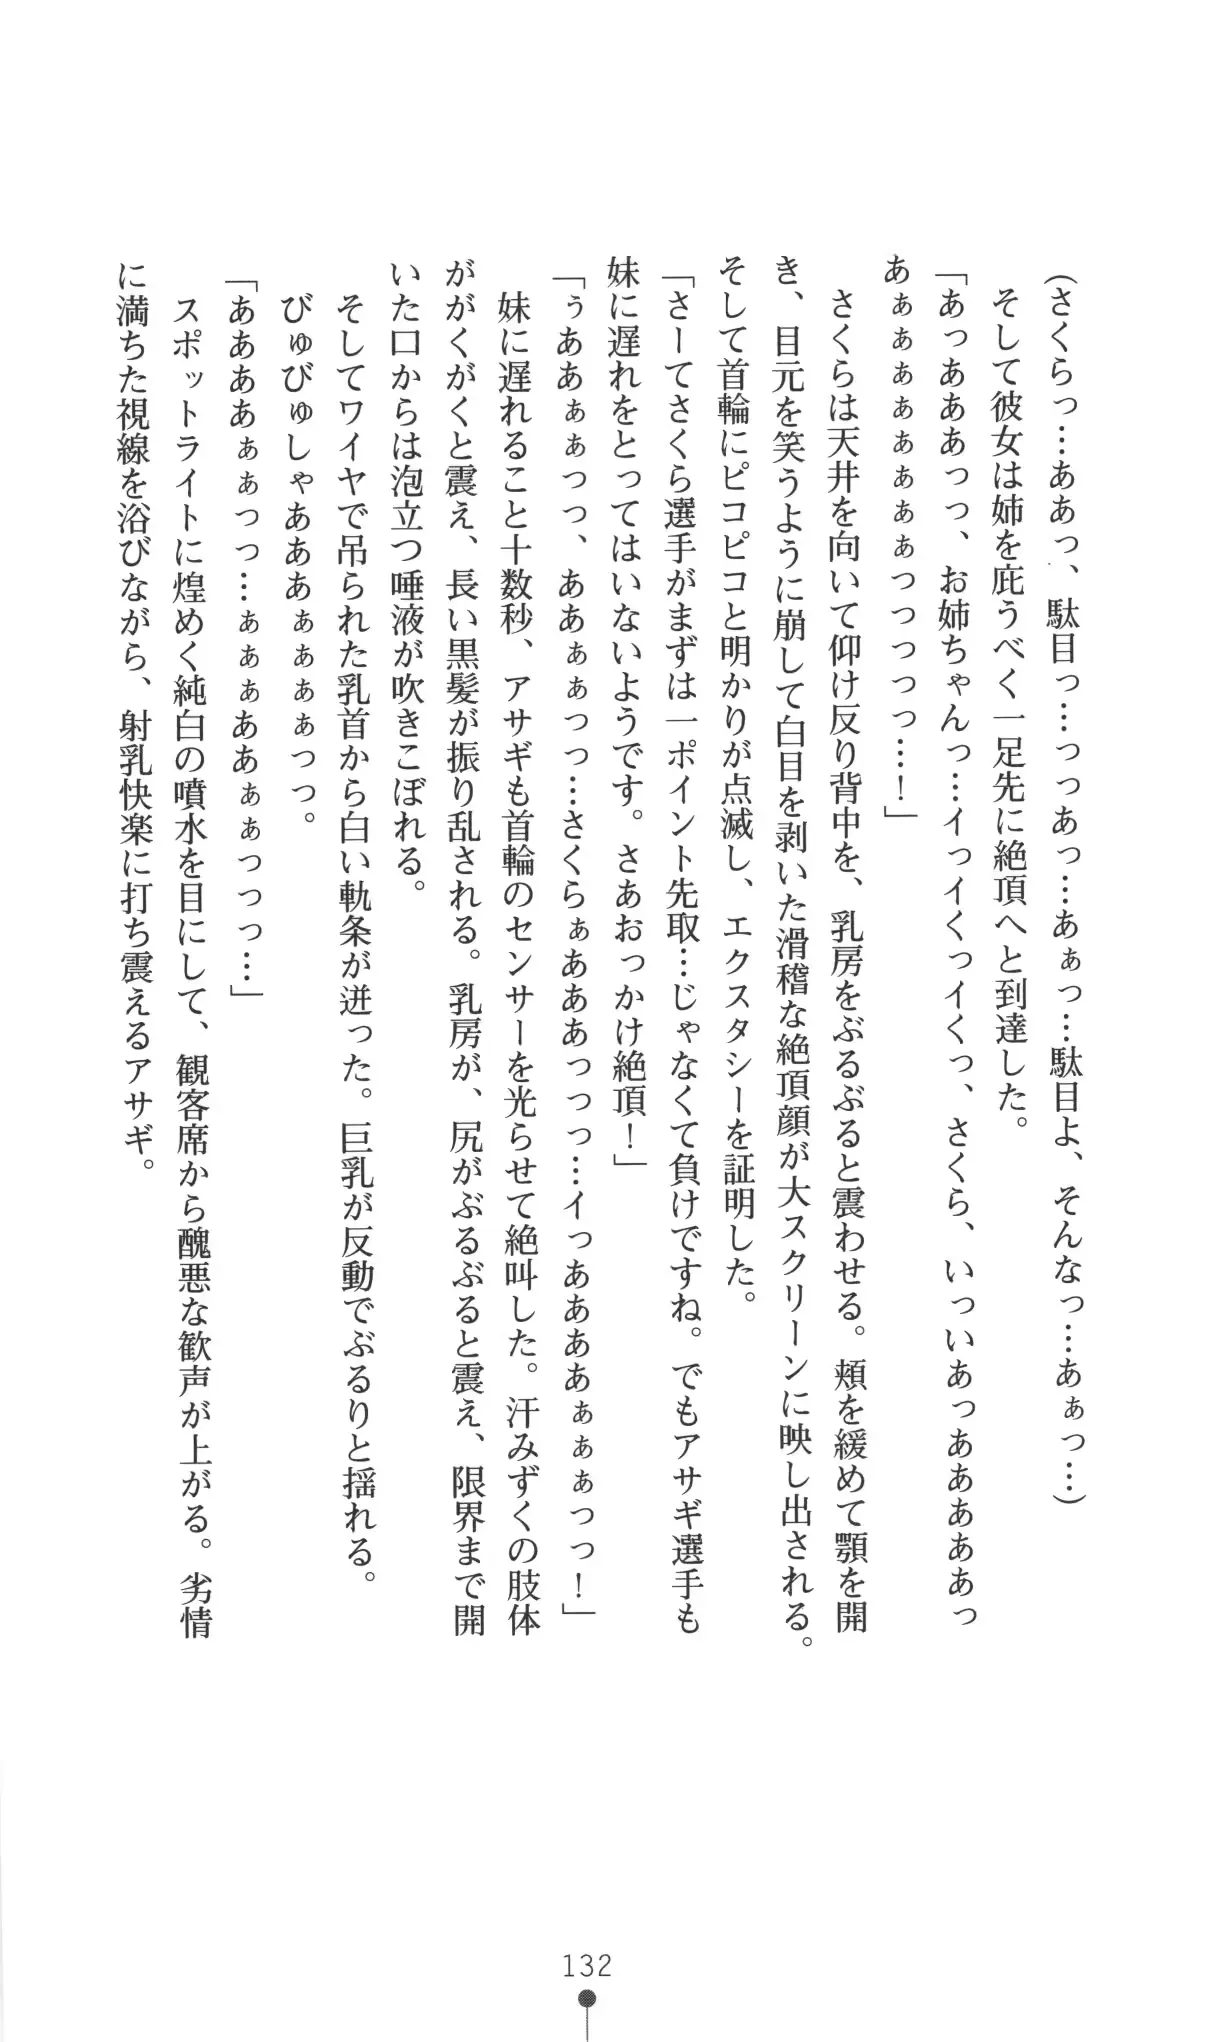 (さくらっ…ああっ、駄目っ…っっあっ…あぁっ…駄目よ、そんなっ…あぁっ…)
そして彼女は姉を庇うべく一足先に絶頂へと到達した。
「あっあああっっ、お姉ちゃんっ…イっイくっイくっ、さくら、いっいあっあああああっ
あぁぁぁぁぁぁぁぁっっっっっ…！」
さくらは天井を向いて仰け反り背中を、乳房をぶるぶると震わせる。頬を緩めて顎を開
き、目元を笑うように崩して白目を剥いた滑稽な絶頂顔が大スクリーンに映し出される。
そして首輪にピコピコと明かりが点滅し、エクスタシーを証明した。
「さーてさくら選手がまずは一ポイント先取…じゃなくて負けですね。でもアサギ選手も
妹に遅れをとってはいないようです。さあおっかけ絶頂！」
「ぅああぁぁっっ、ああぁぁっっ…さくらぁあああっっっ…イっああああぁぁぁっっ！」
妹に遅れること十数秒、アサギも首輪のセンサーを光らせて絶叫した。汗みずくの肢体
ががくがくと震え、長い黒髪が振り乱される。乳房が、尻がぶるぶると震え、限界まで開
いた口からは泡立つ唾液が吹きこぼれる。
そしてワイヤで吊られた乳首から白い軌条が迸った。巨乳が反動でぶるりと揺れる。
びゅびゅしゃあああぁぁぁぁっっ。
「ああああぁぁっっ…ぁぁぁああぁぁっっっ…」
スポットライトに煌めく純白の噴水を目にして、観客席から醜悪な歓声が上がる。劣情
に満ちた視線を浴びながら、射乳快楽に打ち震えるアサギ。
132